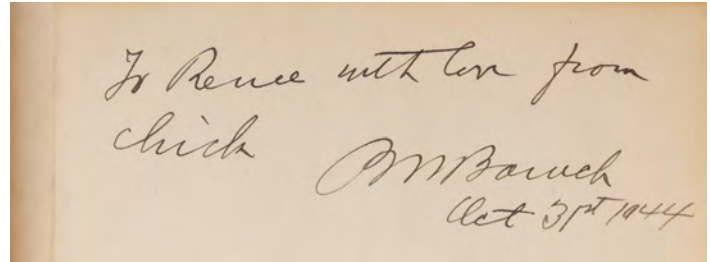 To Renee with love from
Chick
BM Baruch
Oct 31st 1944